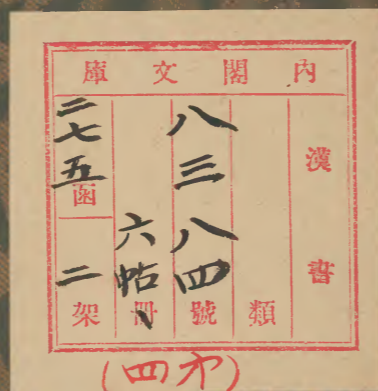 內閣文庫
漢書
類
八三八四號
六帖、冊
二七五函
二架
(才四)